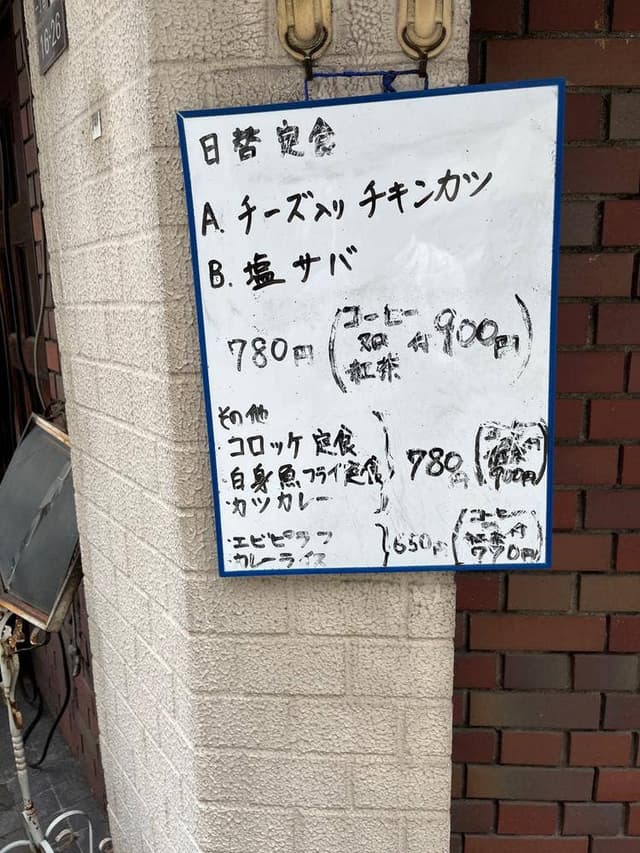 16-26
日替定食
A. チーズ入り チキンカツ
B. 塩サバ
780円 (コーヒー又は紅茶付 900円)
その他
・コロッケ定食
・白身魚フライ定食
・カツカレー
780円 (900円)
・エビピラフ
・カレーライス
650円 (コーヒー 紅茶付 770円)